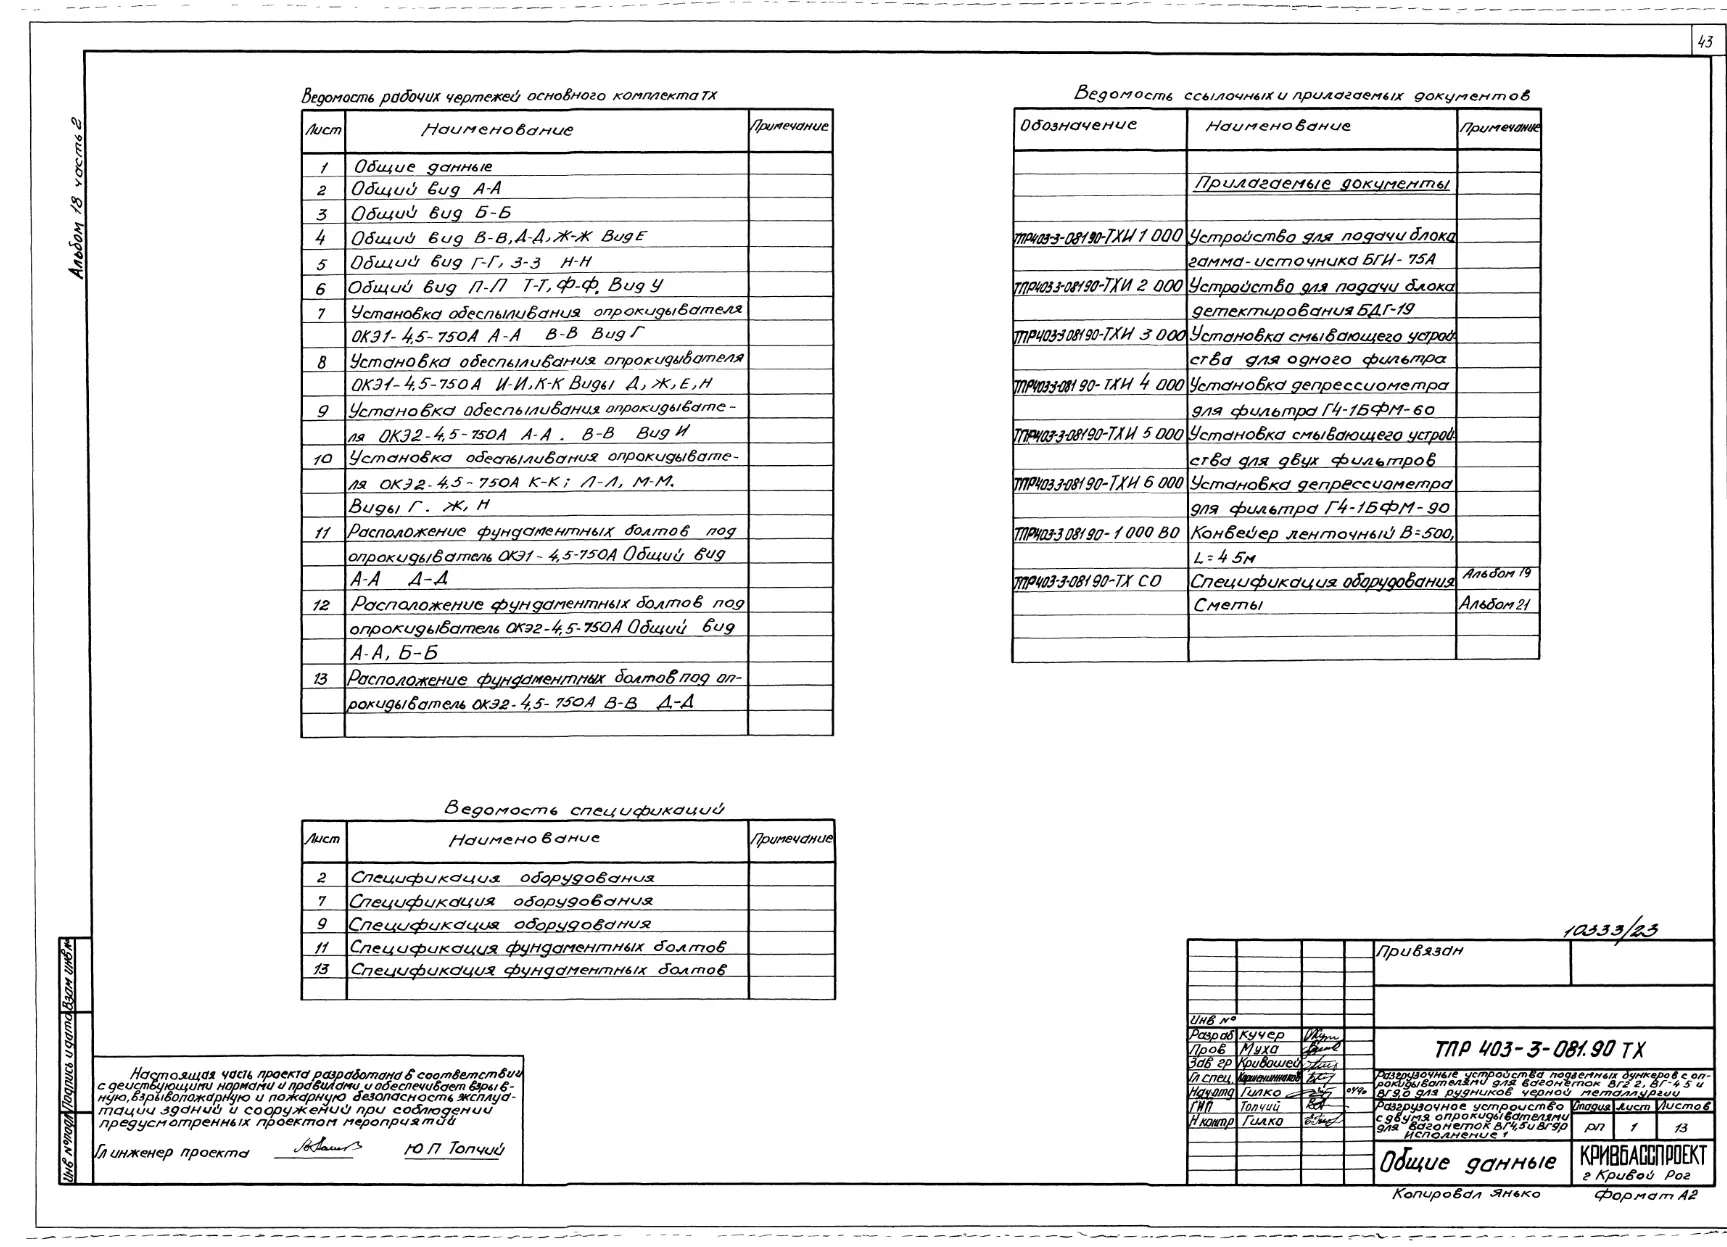 43
Альбом 18 часть 2
Ведомость рабочих чертежей основного комплекта ТХ
Лист Наименование Примечание
1 Общие данные
2 Общий вид А-А
3 Общий вид Б-Б
4 Общий вид В-В, Д-Д, Ж-Ж Вид Е
5 Общий вид Г-Г, З-З Н-Н
6 Общий вид П-П Т-Т, Ф-Ф, Вид У
7 Установка обеспыливания опрокидывателя
ОКЭ1-4,5-750А А-А В-В Вид Г
8 Установка обеспыливания опрокидывателя
ОКЭ1-4,5-750А И-И, К-К Виды Д, Ж, Е, Н
9 Установка обеспыливания опрокидывате-
ля ОКЭ2-4,5-750А А-А . В-В Вид И
10 Установка обеспыливания опрокидывате-
ля ОКЭ2-4,5-750А К-К; Л-Л, М-М.
Виды Г. Ж, Н
11 Расположение фундаментных болтов под
опрокидыватель ОКЭ1-4,5-750А Общий вид
А-А Д-Д
12 Расположение фундаментных болтов под
опрокидыватель ОКЭ2-4,5-750А Общий вид
А-А, Б-Б
13 Расположение фундаментных болтов под оп-
рокидыватель ОКЭ2-4,5-750А В-В Д-Д
Ведомость спецификаций
Лист Наименование Примечание
2 Спецификация оборудования
7 Спецификация оборудования
9 Спецификация оборудования
11 Спецификация фундаментных болтов
13 Спецификация фундаментных болтов
Ведомость ссылочных и прилагаемых документов
Обозначение Наименование Примечание
Прилагаемые документы
ТПР403-3-081 90-ТХИ 1 000 Устройство для подачи блока
гамма-источника БГИ-75А
ТПР403 3-081 90-ТХИ 2 000 Устройство для подачи блока
детектирования БДГ-19
ТПР403-3 081 90-ТХИ 3 000 Установка смывающего устрой-
ства для одного фильтра
ТПР403-3-081 90-ТХИ 4 000 Установка депрессиометра
для фильтра Г4-1БФМ-60
ТПР403-3-081 90-ТХИ 5 000 Установка смывающего устрой-
ства для двух фильтров
ТПР403 3-081 90-ТХИ 6 000 Установка депрессиометра
для фильтра Г4-1БФМ-90
ТПР403-3 081 90-1 000 ВО Конвейер ленточный В=500,
L=45м
ТПР403-3-081 90-ТХ СО Спецификация оборудования Альбом 19
Сметы Альбом 21
Инв № подл Подпись и дата Взам инв №
Настоящая часть проекта разработана в соответствии
с действующими нормами и правилами и обеспечивает взрыв-
ную, взрывопожарную и пожарную безопасность эксплуа-
тации зданий и сооружений при соблюдении
предусмотренных проектом мероприятий
Гл инженер проекта Ю П Топчий
10333/23
Привязан
Инв №
Разраб Кучер
Пров Муха
Зав гр Кривошей
Гл спец
Нач отд Гилко
ГИП Топчий
Н контр Гилко
ТПР 403-3-081.90 ТХ
Разгрузочные устройства подземных бункеров с оп-
рокидывателями для вагонеток ВГ2 2, ВГ-4 5 и
ВГ9,0 для рудников черной металлургии
Разгрузочное устройство
с двумя опрокидывателями
для вагонеток ВГ4,5 и ВГ9,0
Исполнение 1
Стадия Лист Листов
РП 1 13
Общие данные
КРИВБАССПРОЕКТ
г Кривой Рог
Копировал Янько Формат А2